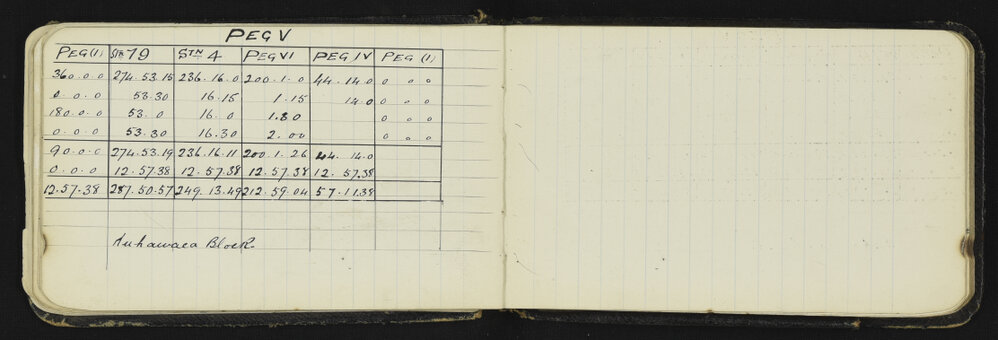 PEG V
PEG (1) STN 79 STN 4 PEG VI PEG IV PEG (1)
360.0.0 274.53.15 236.16.0 200.1.0 44.14.0 0 0 0
0.0.0 53.30 16.15 1.15 14.0 0 0 0
180.0.0 53.0 16.0 1.30 0 0 0
0.0.0 53.30 16.30 2.00 0 0 0
90.0.0 274.53.19 236.16.11 200.1.26 44.14.0
0.0.0 12.57.38 12.57.38 12.57.38 12.57.38
12.57.38 287.50.57 249.13.49 212.59.04 57.11.38
Block